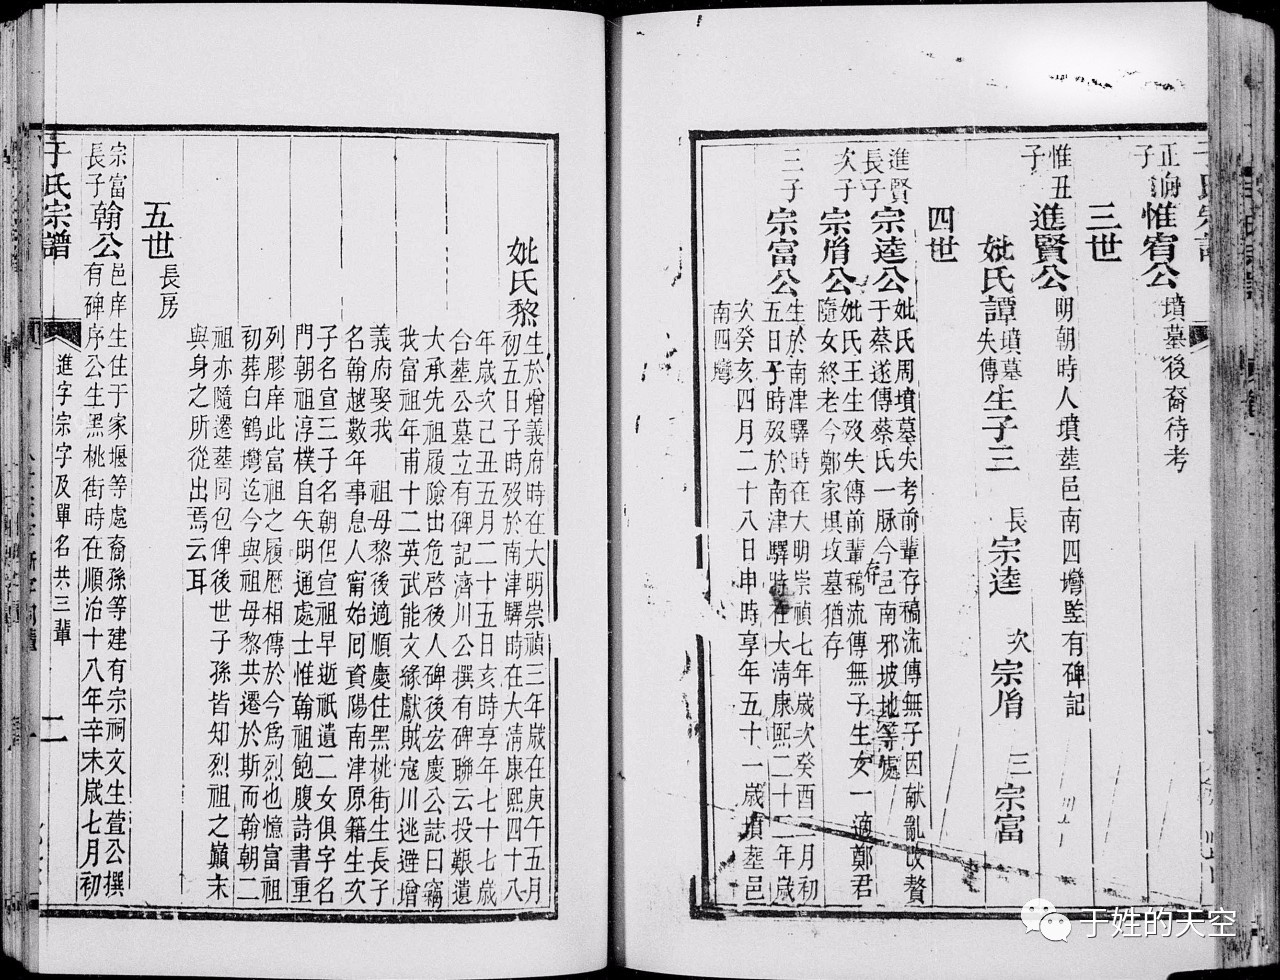 于氏宗譜
正海子
惟宥公
墳墓後裔待考
三世
惟丑子
進賢公
明朝時人墳塋邑南四灣豎有碑記
妣氏譚
墳墓失傳
生子三
長宗逵
次宗脩
三宗富
四世
進賢長子
宗逵公
妣氏周墳墓失考前輩存稿流傳無子因献亂改贅
于蔡遂傳蔡氏一脈今存邑南邪坡地等處
次子
宗脩公
妣氏王生歿失傳前輩稿流傳無子生女一適鄭君
隨女終老今鄭家垻坟墓猶存
三子
宗富公
生於南津驛時在大明崇禎七年歲次癸酉二月初
五日子時歿於南津驛時在大淸康熙二十二年歲
次癸亥四月二十八日申時享年五十一歲墳塋邑
南四灣
妣氏黎
生於增義府時在大明崇禎三年歲在庚午五月
初五日子時歿於南津驛時在大淸康熙四十八
年歲次己丑五月二十五日亥時享年七十七歲
台塋公墓立有碑記濟川公撰有碑聯云投艱遺
大承先祖履險出危啓後人碑後宏慶公誌曰竊
我富祖年甫十二英武能文緣獻賊寇川逃避增
義府娶我 祖母黎後適順慶住黑桃街生長子
名翰越數年事息人甯始囘資陽南津原籍生次
子名宣三子名朝但宣祖早逝祇遺二女俱字名
門朝祖淳樸自矢明通處士惟翰祖飽腹詩書重
列膠庠此富祖之履歷相傳於今爲烈也憶富祖
初葬白鶴灣迄今與祖母黎共遷於斯而翰朝二
祖亦隨遷塋同包俾後世子孫皆知烈祖之巔末
與身之所從出焉云耳
五世
長房
宗富長子
翰公
邑庠生住于家堰等處裔孫等建有宗祠文生萱公撰
有碑序公生黑桃街時在順治十八年辛未歲七月初
于氏宗譜
進字宗字及單名共三輩
二
于姓的天空